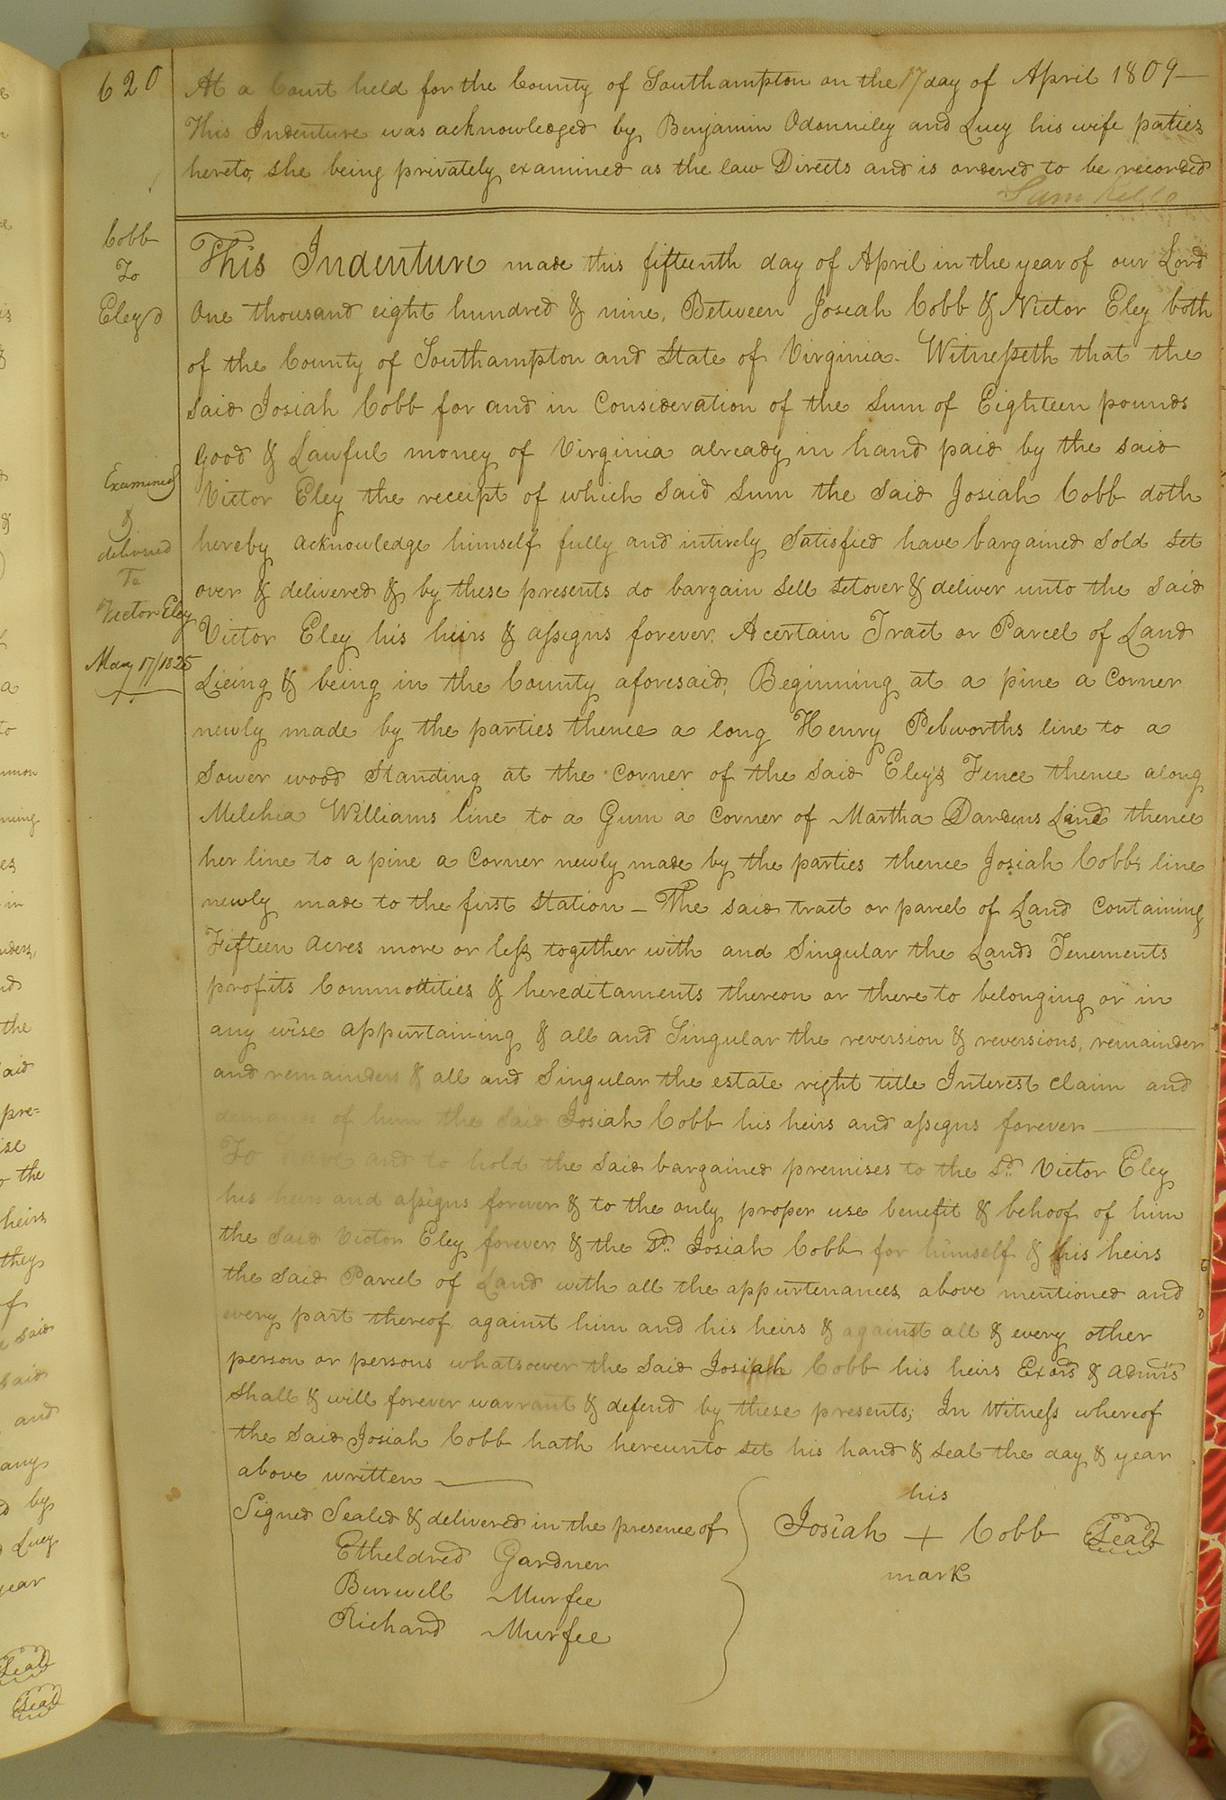 620
At a Court held for the County of Southampton on the 17 day of April 1809
This Indenture was acknowledged by Benjamin Odonniley and Lucy his wife paties
hereto, she being privately examined as the law Directs and is ordered to be recorded
Sam Kello
Cobb
To
Eley
This Indenture made this fifteenth day of April in the year of our Lord
One thousand eight hundred & nine, Between Josiah Cobb & Victor Eley both
of the County of Southampton and State of Virginia. Witnesseth that the
said Josiah Cobb for and in Consideration of the Sum of Eighteen pounds
Good & Lawful money of Virginia already in hand paid by the said
Victor Eley the receipt of which said sum the said Josiah Cobb doth
hereby acknowledge himself fully and intirely Satisfied have bargained Sold Set
over & delivered & by these presents do bargain sell setover & deliver unto the Said
Victor Eley his heirs & assigns forever. A certain Tract or Parcel of Land
Lieing & being in the County aforesaid, Beginning at a pine a Corner
newly made by the parties thence a long Henry Pebworths line to a
Sower wood Standing at the Corner of the said Eley's Fence thence along
Melchia Williams line to a Gum a Corner of Martha Dardens Land thence
her line to a pine a Corner newly made by the parties thence Josiah Cobbs line
newly made to the first station – The said tract or parcel of Land Containing
Fifteen Acres more or less together with and Singular the Lands Tenements
profits Commodities & hereditaments thereon or there to belonging or in
any wise appurtaining & all and Singular the reversion & reversions, remainder
and remainders & all and Singular the estate right title Interest claim and
demand of him the said Josiah Cobb his heirs and assigns forever
To have and to hold the Said bargained premises to the Sd. Victor Eley
his heirs and assigns forever & to the only proper use benefit & behoof of him
the said Victor Eley forever & the Sd. Josiah Cobb for himself & his heirs
the Said Parcel of Land with all the appurtenances above mentioned and
every part thereof against him and his heirs & against all & every other
person or persons whatsoever the Said Josiah Cobb his heirs Exors & admrs
Shall & will forever warrant & defend by these presents; In Witness whereof
the Said Josiah Cobb hath hereunto set his hand & seal the day & year
above written
Signed Sealed & delivered in the presence of
Etheldred Gardner
Burwell Murfee
Richard Murfee
his
Josiah + Cobb Seal
mark
Examined
&
delivered
To
Victor Eley
May 17/1825